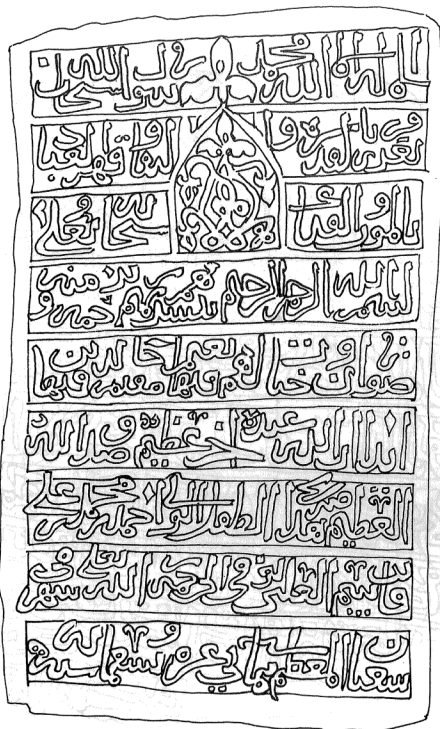 لا إله إلا الله محمد رسول الله سبحان
من تعزز بالقدرة والبقاء وقهر العباد
بالموت والفناء سبحانه وتعالى
بسم الله الرحمن الرحيم يبشرهم ربهم برحمة منه و
رضوان وجنات لهم فيها نعيم مقيم خالدين فيها
أبدا إن الله عنده أجر عظيم وصدق الله
العظيم هذا ضريح الطفل محمد بن علي
قاسم توفي إلى رحمة الله تعالى في شهر
شعبان المعظم سنة